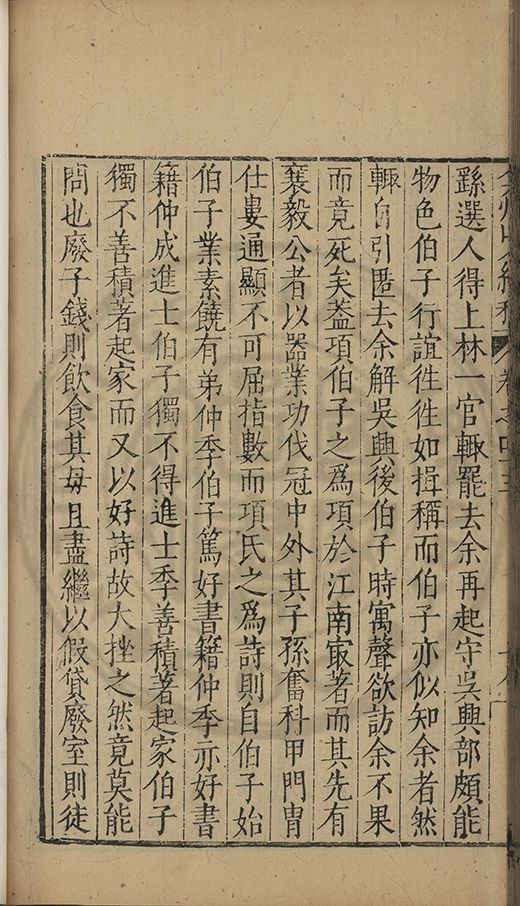 繇選人得上林一官輙罷去余再起守吳興部頗能
物色伯子行誼徃徃如揖稱而伯子亦似知余者然
輙自引匿去余解吳興後伯子時寓聲欲訪余不果
而竟死矣葢項伯子之爲項於江南㝡著而其先有
襄毅公者以器業功伐冠中外其子孫奮科甲門胄
仕婁通顯不可屈指數而項氏之爲詩則自伯子始
伯子業素饒有弟仲季伯子篤好書籍仲季亦好書
籍仲成進士伯子獨不得進士季善積著起家伯子
獨不善積著起家而又以好詩故大挫之然竟莫能
問也廢子錢則飲食其毋且盡繼以假貸廢室則徒